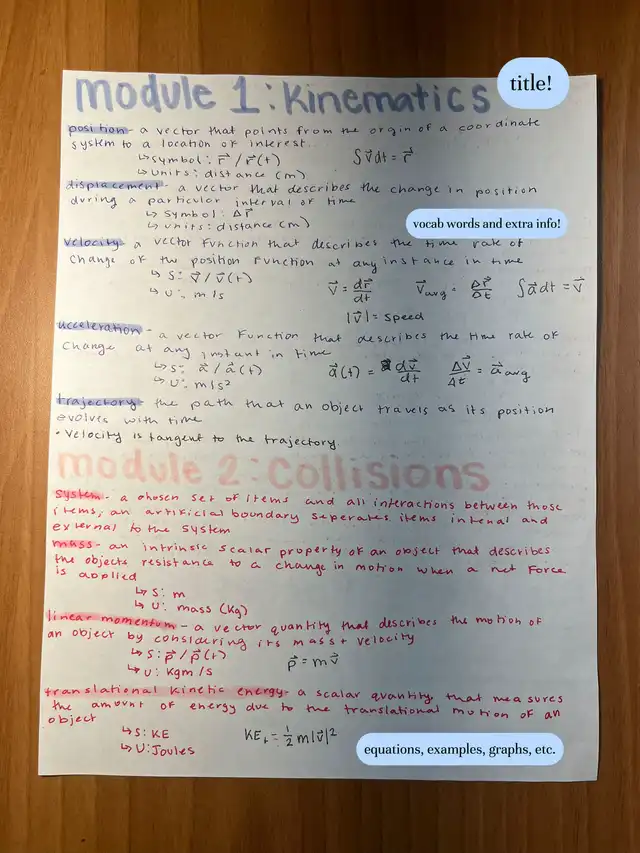 module 1: Kinematics
title!
position - a vector that points from the origin of a coordinate
system to a location of interest.
↳ symbol: r⃗ / r⃗(t)
∫v⃗dt = r⃗
↳ units: distance (m)
displacement - a vector that describes the change in position
during a particular interval of time
↳ symbol: Δr⃗
↳ units: distance (m)
vocab words and extra info!
velocity - a vector function that describes the time rate of
change of the position function at any instance in time
↳ S: v⃗ / v⃗(t)
↳ U: m/s
v⃗ = dr⃗/dt
v⃗avg = Δr⃗/Δt
∫a⃗dt = v⃗
|v⃗| = speed
acceleration - a vector function that describes the time rate of
change at any instant in time
↳ S: a⃗ / a⃗(t)
↳ U: m/s²
a⃗(t) = dv⃗/dt
Δv⃗/Δt = a⃗avg
trajectory - the path that an object travels as its position
evolves with time
• velocity is tangent to the trajectory
module 2: Collisions
system - a chosen set of items and all interactions between those
items, an artificial boundary seperates items intenal and
external to the system
mass - an intrinsic scalar property of an object that describes
the objects resistance to a change in motion when a net force
is applied
↳ S: m
↳ U: mass (kg)
linear momentum - a vector quantity that describes the motion of
an object by considering its mass + velocity
↳ S: p⃗ / p⃗(t)
p⃗ = mv⃗
↳ U: kgm/s
translational kinetic energy - a scalar quantity that measures
the amount of energy due to the translational motion of an
object
↳ S: KE
KEt = 1/2 m|v⃗|²
↳ U: Joules
equations, examples, graphs, etc.